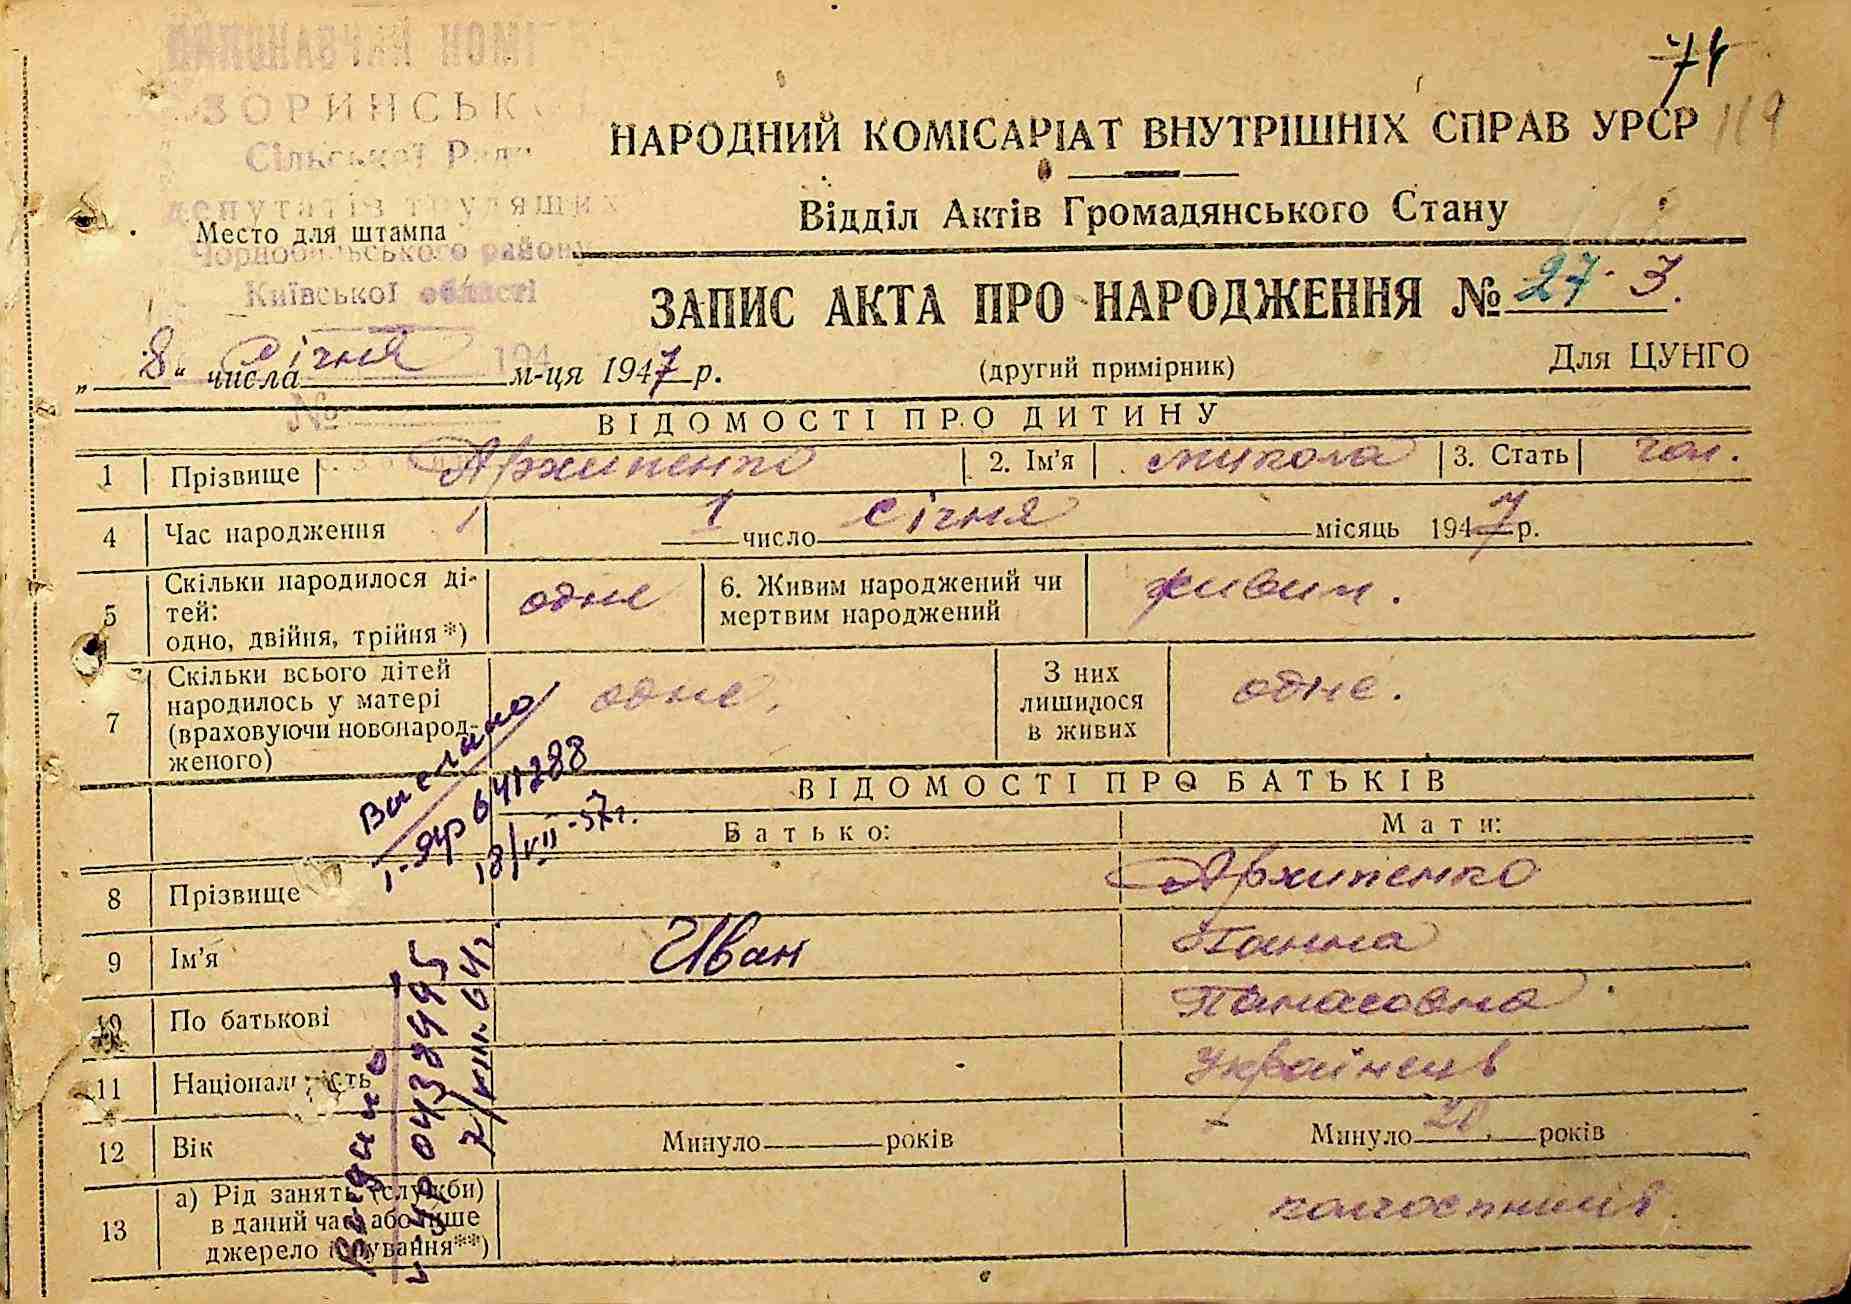 74
119
ЗОРИНСЬК
Сільської Ради
депутатів трудящих
Место для штампа
Чорнобильського району
Київської області
194
№
НАРОДНИЙ КОМІСАРІАТ ВНУТРІШНІХ СПРАВ УРСР
Відділ Актів Громадянського Стану
ЗАПИС АКТА ПРО НАРОДЖЕННЯ № 27. 3.
„8“ числа січня м-ця 1947 р.
(другий примірник)
Для ЦУНГО
ВІДОМОСТІ ПРО ДИТИНУ
1 Прізвище Архипенко 2. Ім'я Микола 3. Стать чол.
4 Час народження 1 число січня місяць 1947 р.
5 Скільки народилося ді-
тей:
одно, двійня, трійня*) одне
6. Живим народжений чи
мертвим народжений живим.
7 Скільки всього дітей
народилось у матері
(враховуючи новонарод-
женого) одне.
З них
лишилося
в живих одне.
Выслано
641288
18/VII-57г.
ВІДОМОСТІ ПРО БАТЬКІВ
Батько: Мати:
8 Прізвище Архипенко
9 Ім'я Иван Ганна
10 По батькові Панасовна
11 Національність Українець
12 Вік Минуло років Минуло 20 років
13 а) Рід занять (служби)
в даний час або інше
джерело існування**) колгоспниця.
Видано
0438995
2/VIII. 64г.